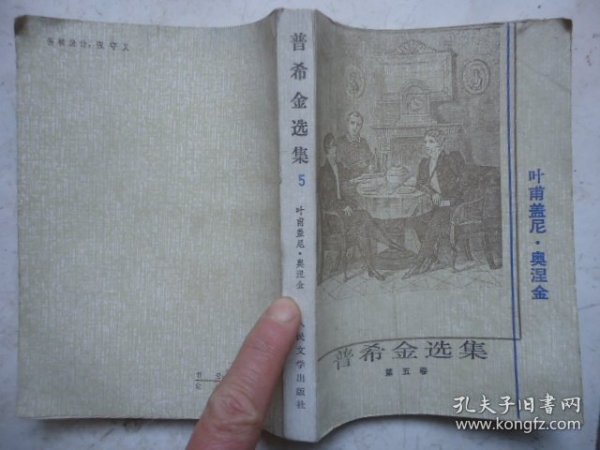 普希金选集
5
叶甫盖尼·奥涅金
人民文学出版社
叶甫盖尼·奥涅金
普希金选集
第五卷
孔夫子旧书网
www.kongfz.com